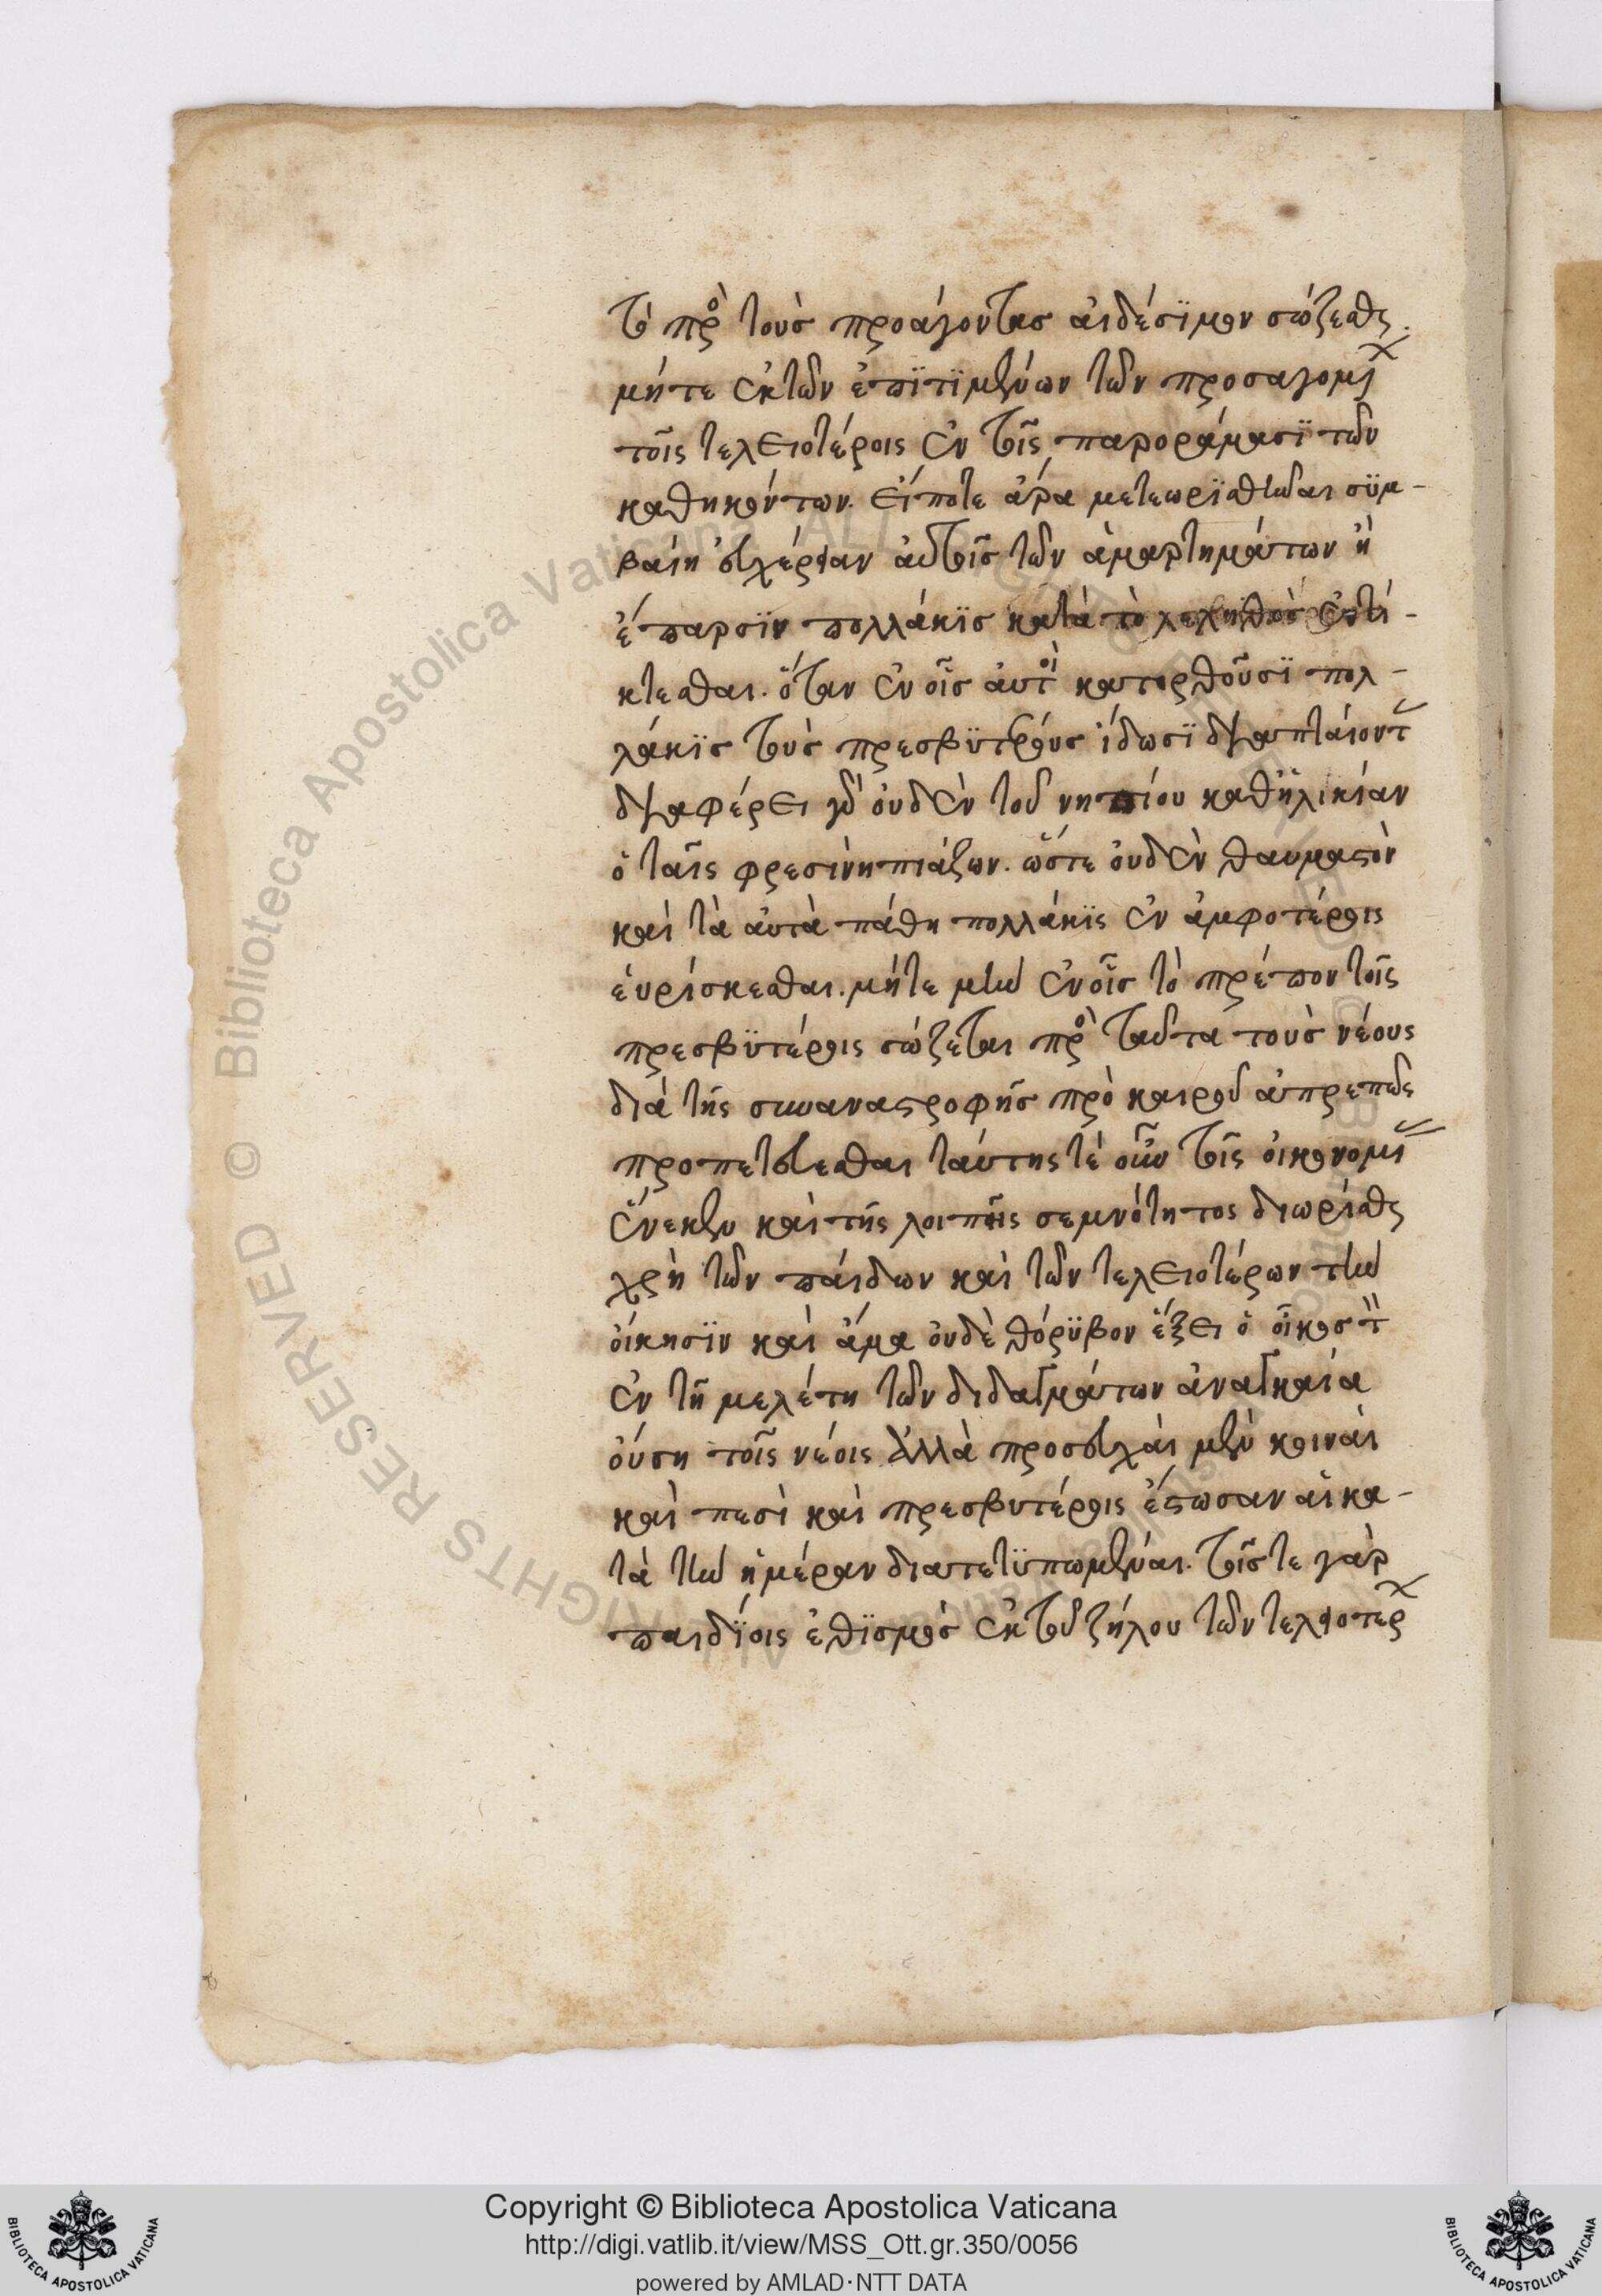 τὸ πρὸς τοὺς προάγοντας αἰδέσϊμον σώζεσθαι.
μήτε ἐκ τῶν ἐπϊτϊμίων τῶν προσαγομένων
τοῖς τελειοτέροις ἐν τοῖς παροράμασϊ τῶν
καθηκόντων. εἴποτε ἄρα μετεωρϊσθῆναι σϋμ-
βαίη εὐχέρειαν αὐτοῖς τῶν ἁμαρτημάτων ἢ
ἔπαρσϊν πολλάκϊς κατὰ τὸ λεληθὸς ἐντί-
κτεσθαι. ὅταν ἐν οἷς αὐτοὶ κατορθοῦσϊ πολ-
λάκϊς τοὺς πρεσβϋτέρους ἴδωσϊ διαπταίοντας
διαφέρει γὰρ οὐδὲν τοῦ νηπίου καθ' ἡλικίαν
ὁ ταῖς φρεσὶ νηπιάζων. ὥστε οὐδὲν θαυμαστὸν
καὶ τὰ αὐτὰ πάθη πολλάκϊς ἐν ἀμφοτέροις
εὑρίσκεσθαι. μήτε μὴν ἐν οἷς τὸ πρέπον τοῖς
πρεσβϋτέροις σώζεται πρὸς ταῦτα τοὺς νέους
διὰ τῆς συναναστροφῆς πρὸ καιροῦ ἀπρεπῶς
προπετεύεσθαι ταύτης τὲ οὖν τῆς οἰκονομίας
ἕνεκεν καὶ τῆς λοιπῆς σεμνότητος διωρίσθαι
χρὴ τῶν παίδων καὶ τῶν τελειοτέρων τὴν
οἴκησϊν καὶ ἅμα οὐδὲ θόρϋβον ἕξει ὁ οἶκος τῶν
ἐν τῇ μελέτῃ τῶν διδαγμάτων ἀναγκαία
οὔσῃ τοῖς νέοις ἀλλὰ προσευχαὶ μὲν κοιναὶ
καὶ πεσὶ καὶ πρεσβυτέροις ἔστωσαν αἱ κα-
τὰ τὴν ἡμέραν διατετϋπωμέναι. τοῖς τε γὰρ
παιδίοις ἐθϊσμὸς ἐκ τοῦ ζήλου τῶν τελειοτέρων
Copyright © Biblioteca Apostolica Vaticana
http://digi.vatlib.it/view/MSS_Ott.gr.350/0056
powered by AMLAD·NTT DATA